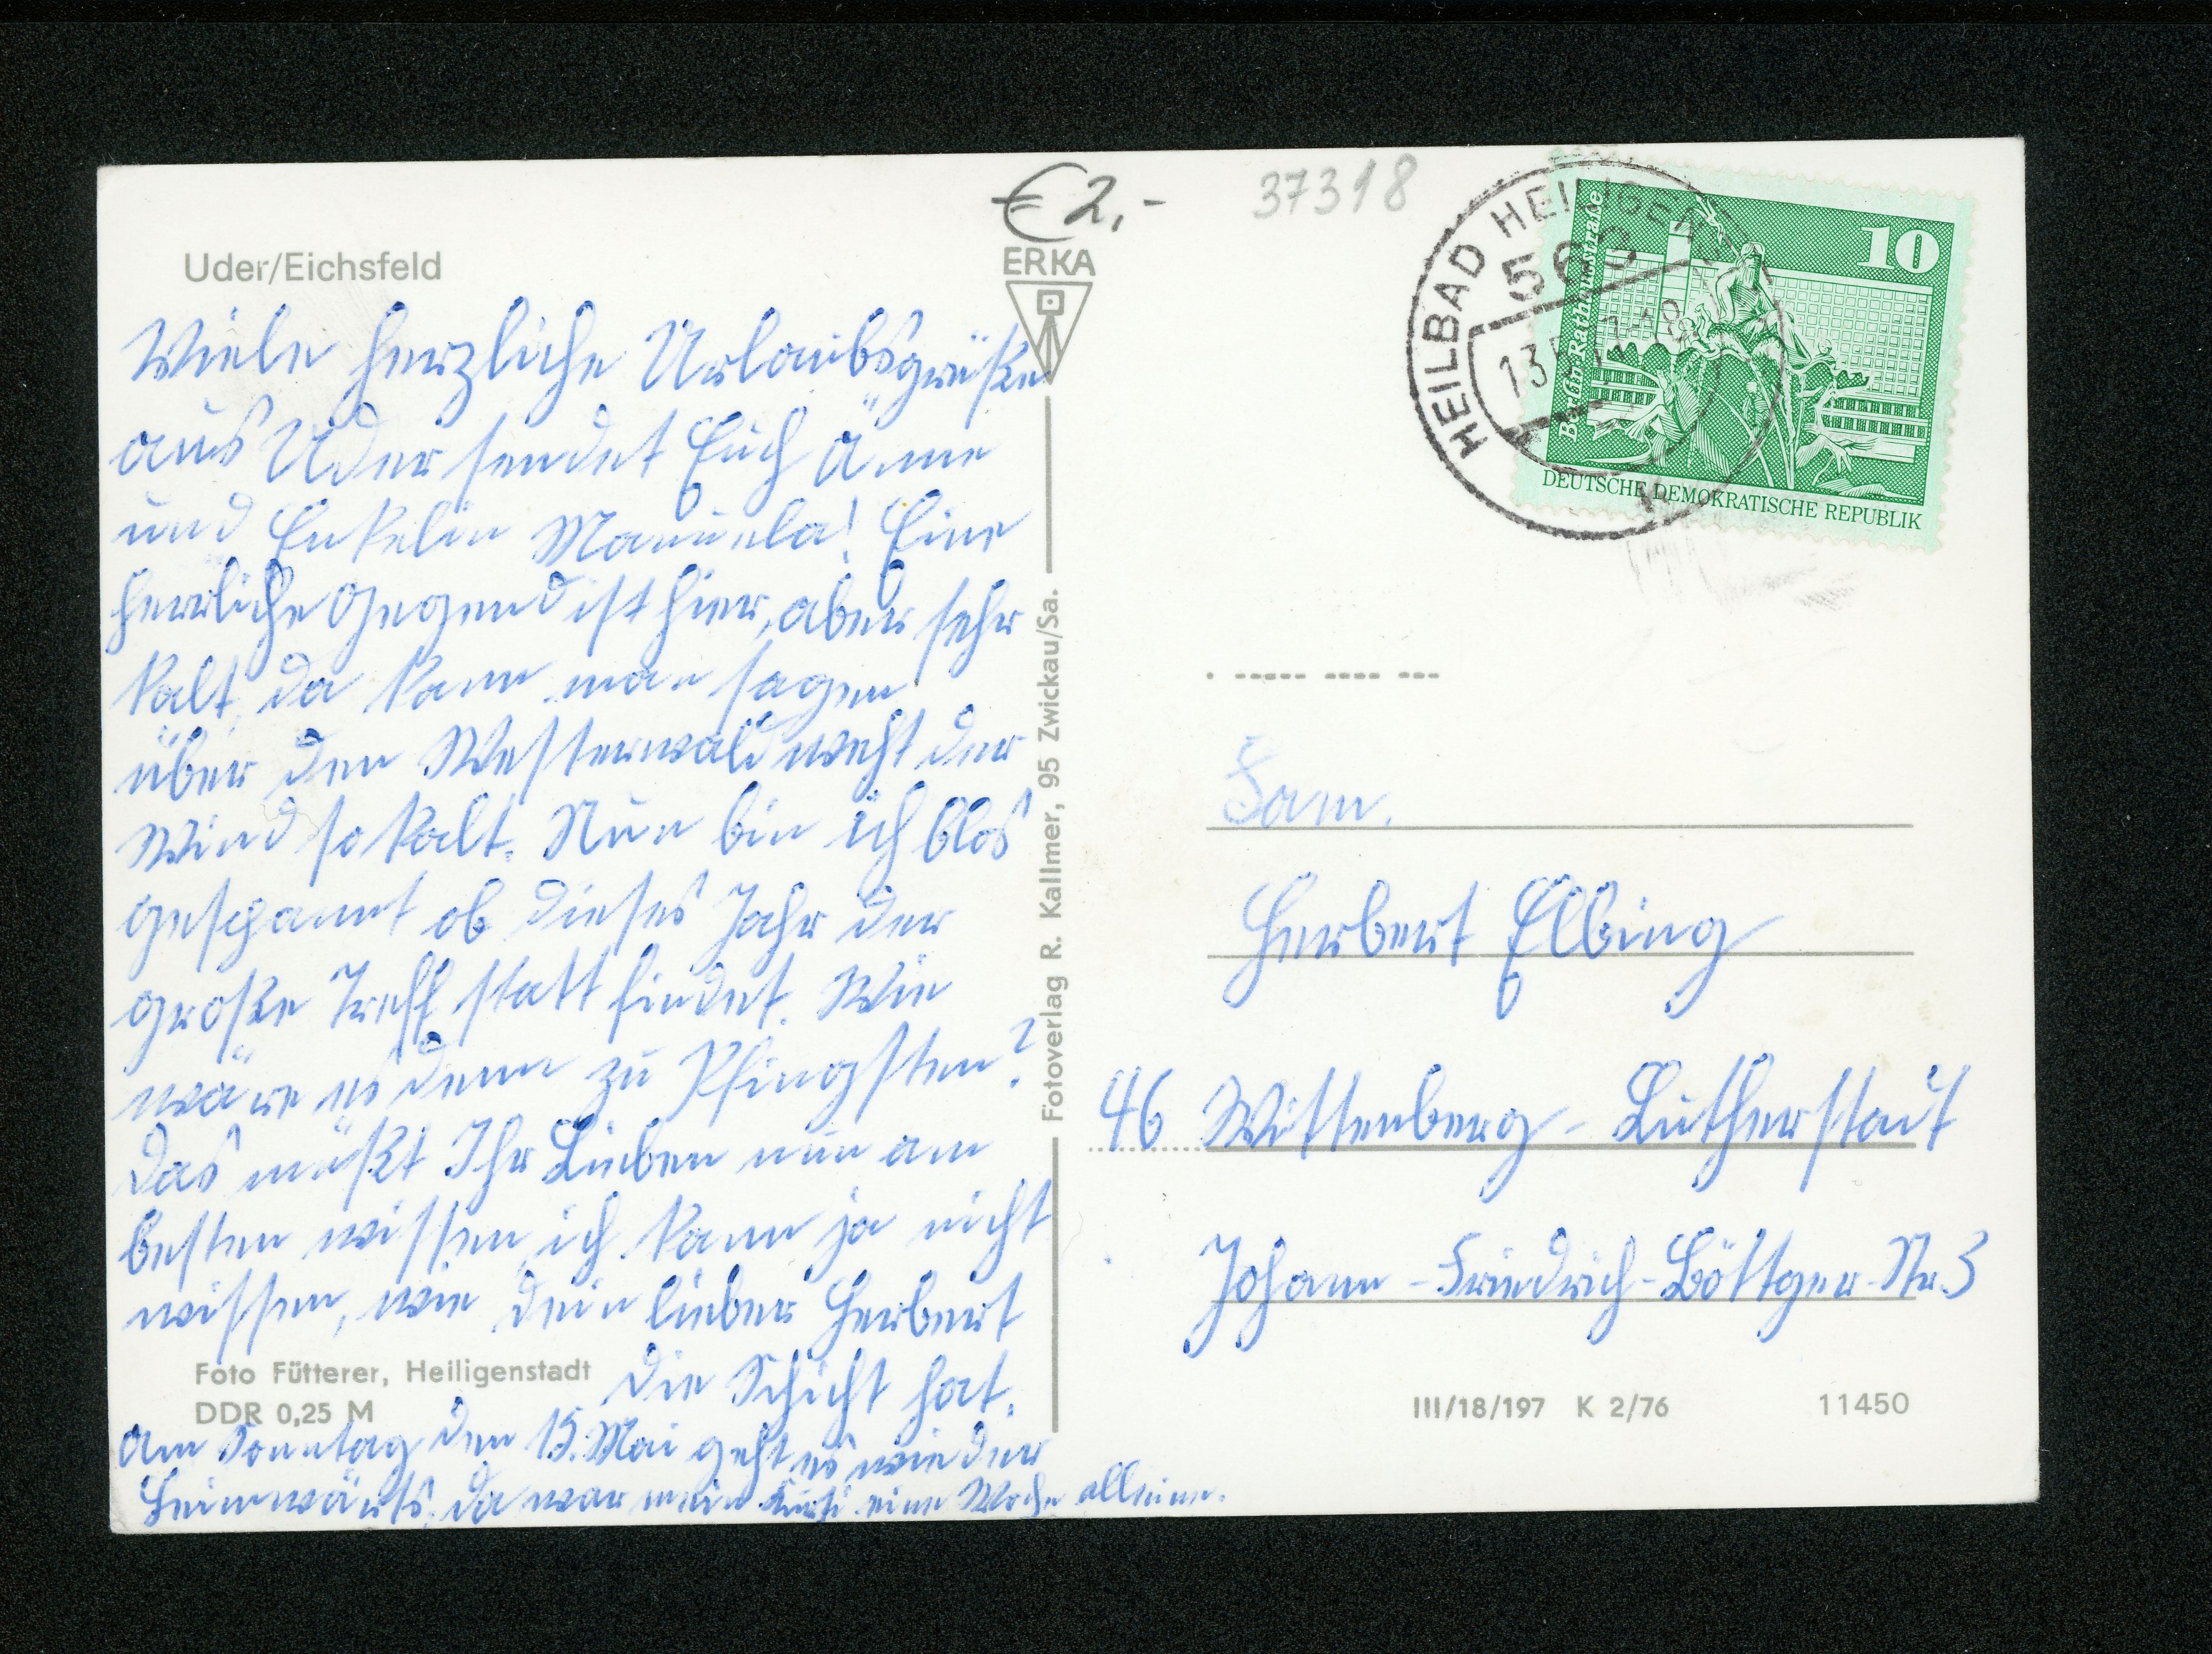 Uder/Eichsfeld
Viele herzliche Urlaubsgrüße
aus Uder sendet Euch Änne
und Enkelin Manuela! Eine
herrliche Gegend ist hier, aber sehr
kalt, da kann man sagen
über den Westerwald weht der
Wind so kalt. Nun bin ich blos
gespannt ob dieses Jahr der
große Treff statt findet. Wie
wäre es denn zu Pfingsten?
Das müßt Ihr Lieben nun am
besten wissen, ich kann ja nicht
wissen, wie dein lieber Herbert
die Schicht hat.
Am Sonntag den 15. Mai geht es wieder
heimwärts, da war mein Kurti eine Woche alleine.
Foto Fütterer, Heiligenstadt
DDR 0,25 M
€ 2,-
ERKA
Fotoverlag R. Kallmer, 95 Zwickau/Sa.
37318
HEILBAD HEILIGEN
560
13
Berlin, Rathausstraße
10
DEUTSCHE DEMOKRATISCHE REPUBLIK
Fam.
Herbert Elbing
46 Wittenberg-Lutherstadt
Johann-Friedrich-Böttger-Str. 3
III/18/197 K 2/76
11450